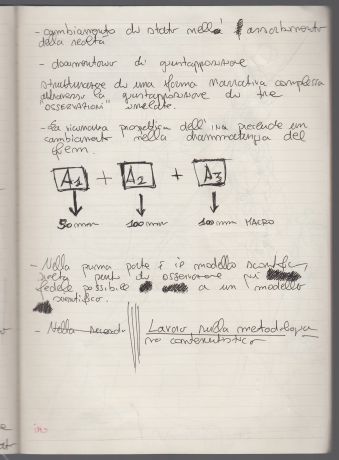 - cambiamento di stato nella assorbimento
della realtà
- documentario di giustapposizione
strutturazione di una forma narrativa complessa
attraverso la giustapposizione di tre
"OSSERVAZIONI" slegate.
- La vicinanza progettica dell' prelude un
cambiamento nella drammaturgia del
film.
A1 + A2 + A3
50mm 100mm 100mm MACRO
- Nella prima parte è il modello scientifico,
punto di osservazione più
fedele possibile a un modello
scientifico.
- Nella second Lavoro sulla metodologia
no contenutistico